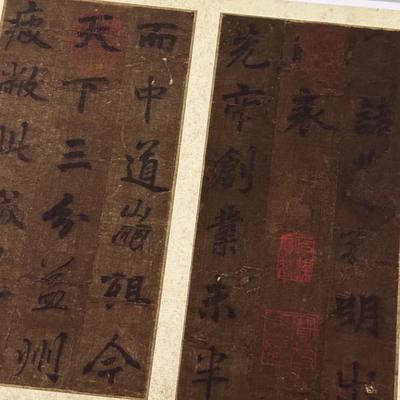 諸葛孔明出
表
先帝創業未半
而中道崩殂今
天下三分益州
疲敝此誠